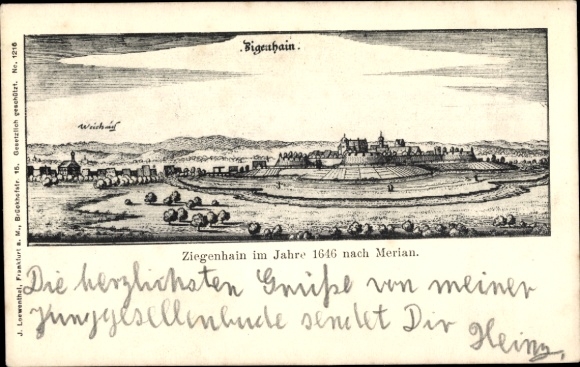 Zigenhain.
Weichaus
J. Loewenthal, Frankfurt a. M., Brückhofstr. 15. Gesetzlich geschützt. No. 1216
Ziegenhain im Jahre 1646 nach Merian.
Die herzlichsten Grüße von meiner
Junggesellenbude sendet Dir Heinz.